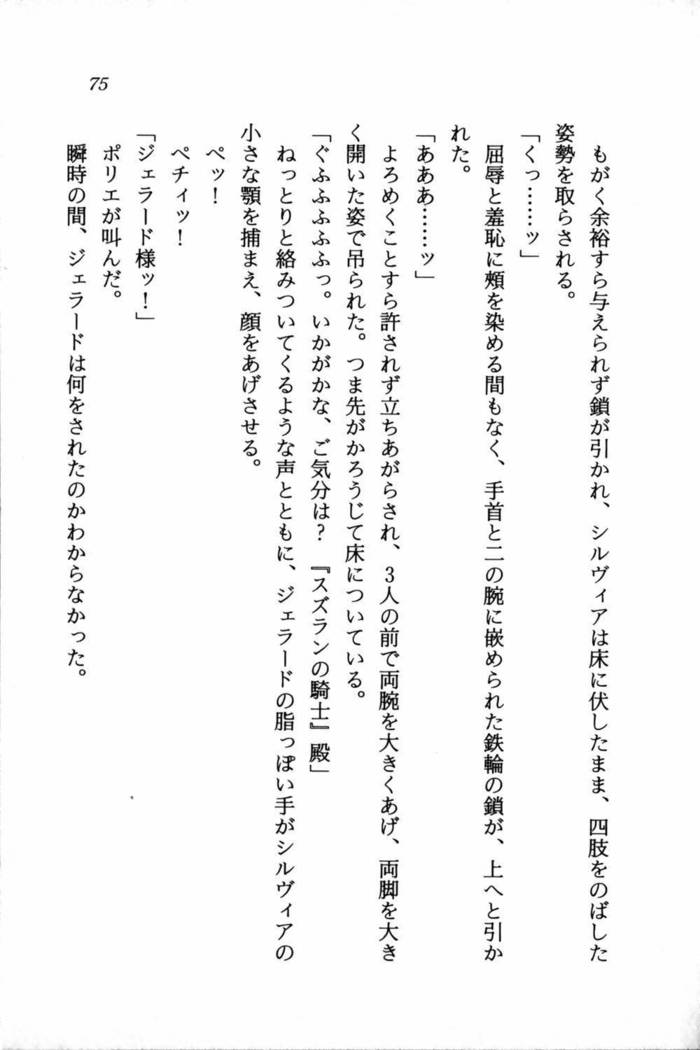 75
もがく余裕すら与えられず鎖が引かれ、シルヴィアは床に伏したまま、四肢をのばした
姿勢を取らされる。
「くっ……ッ」
屈辱と羞恥に頬を染める間もなく、手首と二の腕に嵌められた鉄輪の鎖が、上へと引か
れた。
「あああ……ッ」
よろめくことすら許されず立ちあがらされ、3人の前で両腕を大きくあげ、両脚を大き
く開いた姿で吊られた。つま先がかろうじて床についている。
「ぐふふふふふっ。いかがかな、ご気分は？　『スズランの騎士』殿」
ねっとりと絡みついてくるような声とともに、ジェラードの脂っぽい手がシルヴィアの
小さな顎を捕まえ、顔をあげさせる。
ペッ！
ペチィッ！
「ジェラード様ッ！」
ポリエが叫んだ。
瞬時の間、ジェラードは何をされたのかわからなかった。